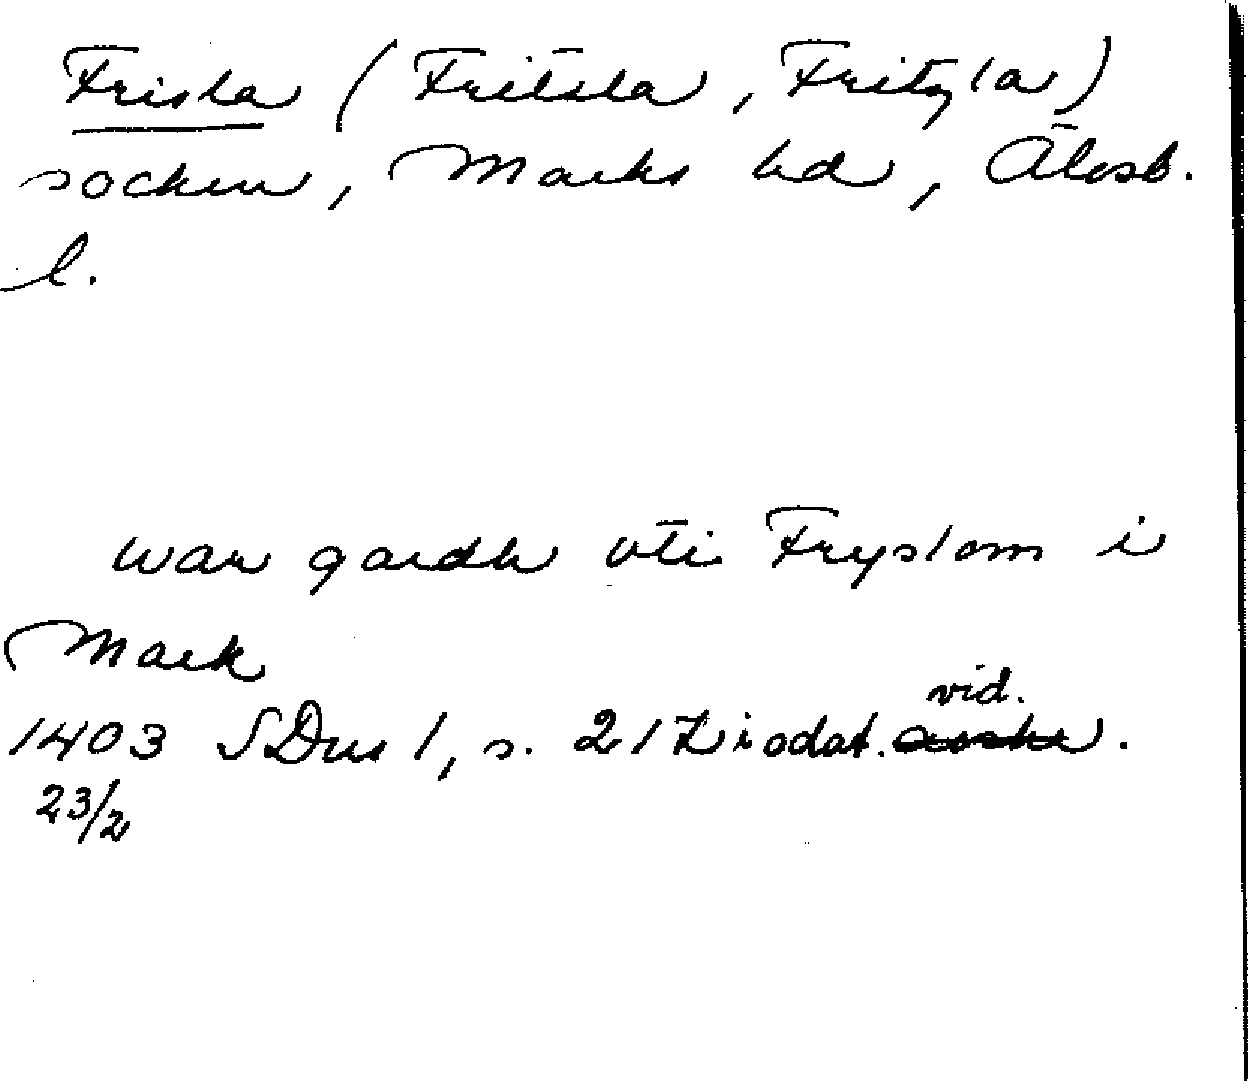 Frisla (Fritsla, Fritzla)
socken, Marks hd, Älvsb.
l.
war gardh vti Fryslom i
Mark
vid.
1403 SDns 1, s. 217 i odat. avskr.
23/2